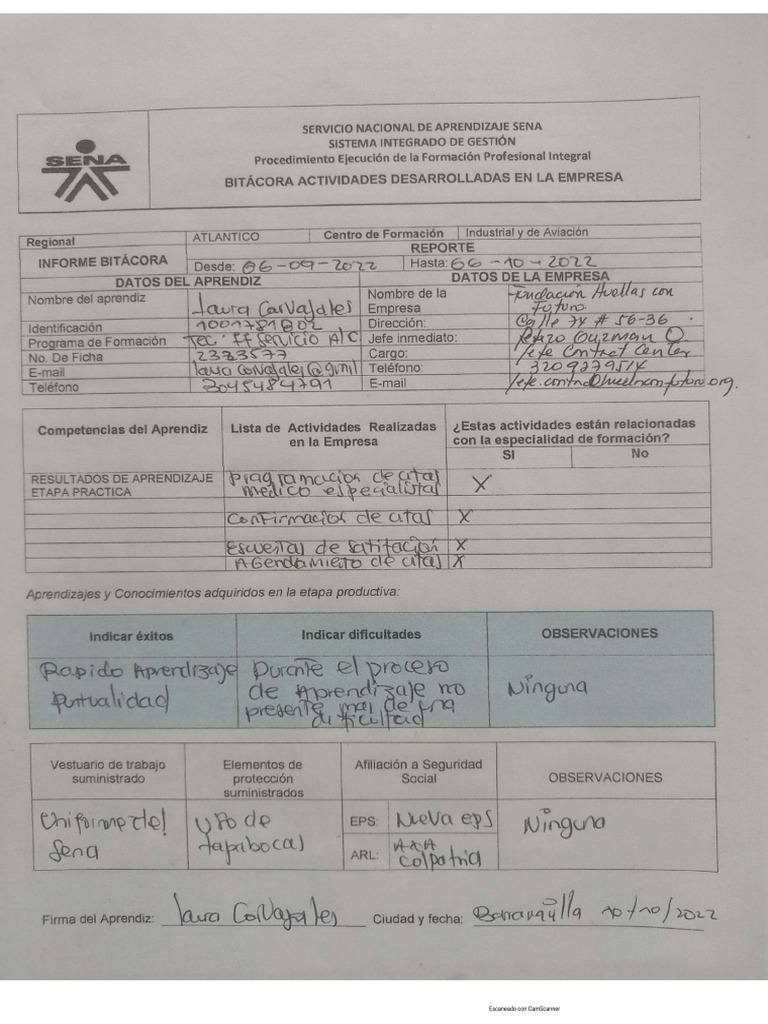 SENA
SERVICIO NACIONAL DE APRENDIZAJE SENA
SISTEMA INTEGRADO DE GESTIÓN
Procedimiento Ejecución de la Formación Profesional Integral
BITÁCORA ACTIVIDADES DESARROLLADAS EN LA EMPRESA
Regional ATLANTICO Centro de Formación Industrial y de Aviación
INFORME BITÁCORA REPORTE
Desde: 06-09-2022 Hasta: 06-10-2022
DATOS DEL APRENDIZ DATOS DE LA EMPRESA
Nombre del aprendiz Laura Carvajales
Nombre de la Empresa Fundación Huellas con Futuro
Identificación 1001781802 Dirección: Calle 74 # 56-36
Programa de Formación Tec: Servicio A/C Jefe inmediato: Guzman O.
No. De Ficha 2333577 Cargo: Jefe Contact Center
E-mail Teléfono:
Teléfono 3045484791 E-mail
Competencias del Aprendiz
Lista de Actividades Realizadas
en la Empresa
¿Estas actividades están relacionadas
con la especialidad de formación?
SI No
RESULTADOS DE APRENDIZAJE
ETAPA PRACTICA
Programacion de citas
medico especialistas X
Confirmacion de citas X
de X
Agendamieto de citas X
Aprendizajes y Conocimientos adquiridos en la etapa productiva:
Indicar éxitos Indicar dificultades OBSERVACIONES
Rapido Aprendizaje
Puntualidad
Durante el proceso
de Aprendizaje no
presente mas de una
dificultad
Ninguna
Vestuario de trabajo
suministrado
Elementos de
protección
suministrados
Afiliación a Seguridad
Social
OBSERVACIONES
Uniforme del
Sena
Uso de
tapabocas
EPS: Nueva eps
ARL: AXA
Colpatria
Ninguna
Firma del Aprendiz: Laura Carvajales Ciudad y fecha: Barranquilla 10/10/2022
Escaneado con CamScanner